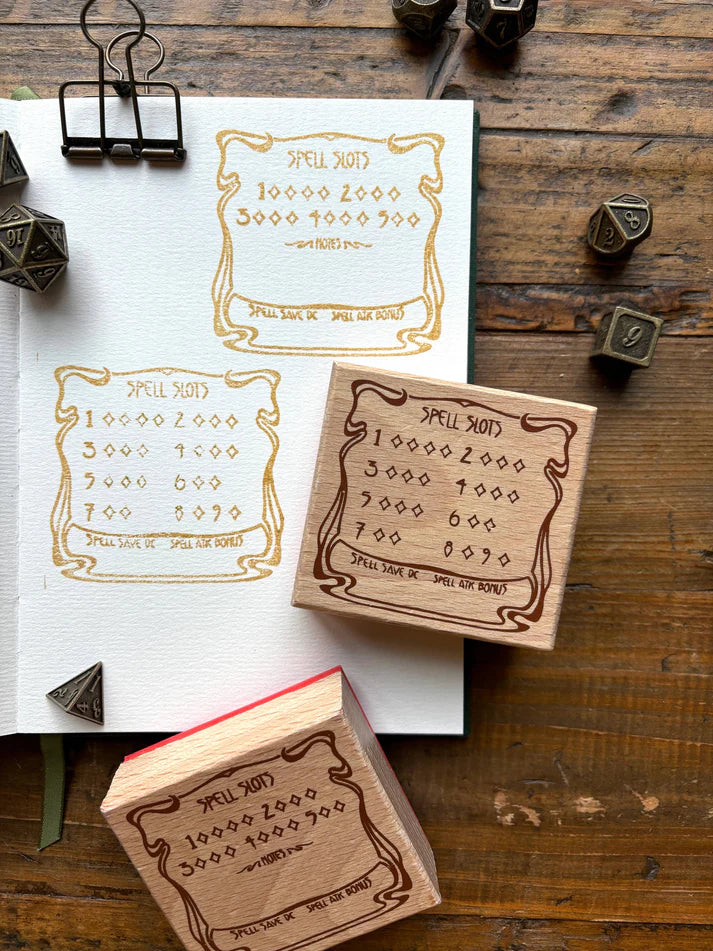 SPELL SLOTS
1◇◇◇◇ 2◇◇◇
3◇◇◇ 4◇◇◇ 5◇◇
NOTES
SPELL SAVE DC SPELL ATK BONUS
SPELL SLOTS
1 ◇◇◇◇ 2 ◇◇◇
3 ◇◇◇ 4 ◇◇◇
5 ◇◇◇ 6 ◇◇
7 ◇◇ 8 ◇ 9 ◇
SPELL SAVE DC SPELL ATK BONUS
SPELL SLOTS
1 ◇◇◇◇ 2 ◇◇◇
3 ◇◇◇ 4 ◇◇◇
5 ◇◇◇ 6 ◇◇
7 ◇◇ 8 ◇ 9 ◇
SPELL SAVE DC SPELL ATK BONUS
SPELL SLOTS
1◇◇◇◇ 2◇◇◇
3◇◇◇ 4◇◇◇ 5◇◇
NOTES
SPELL SAVE DC SPELL ATK BONUS
7
16
2
8
9